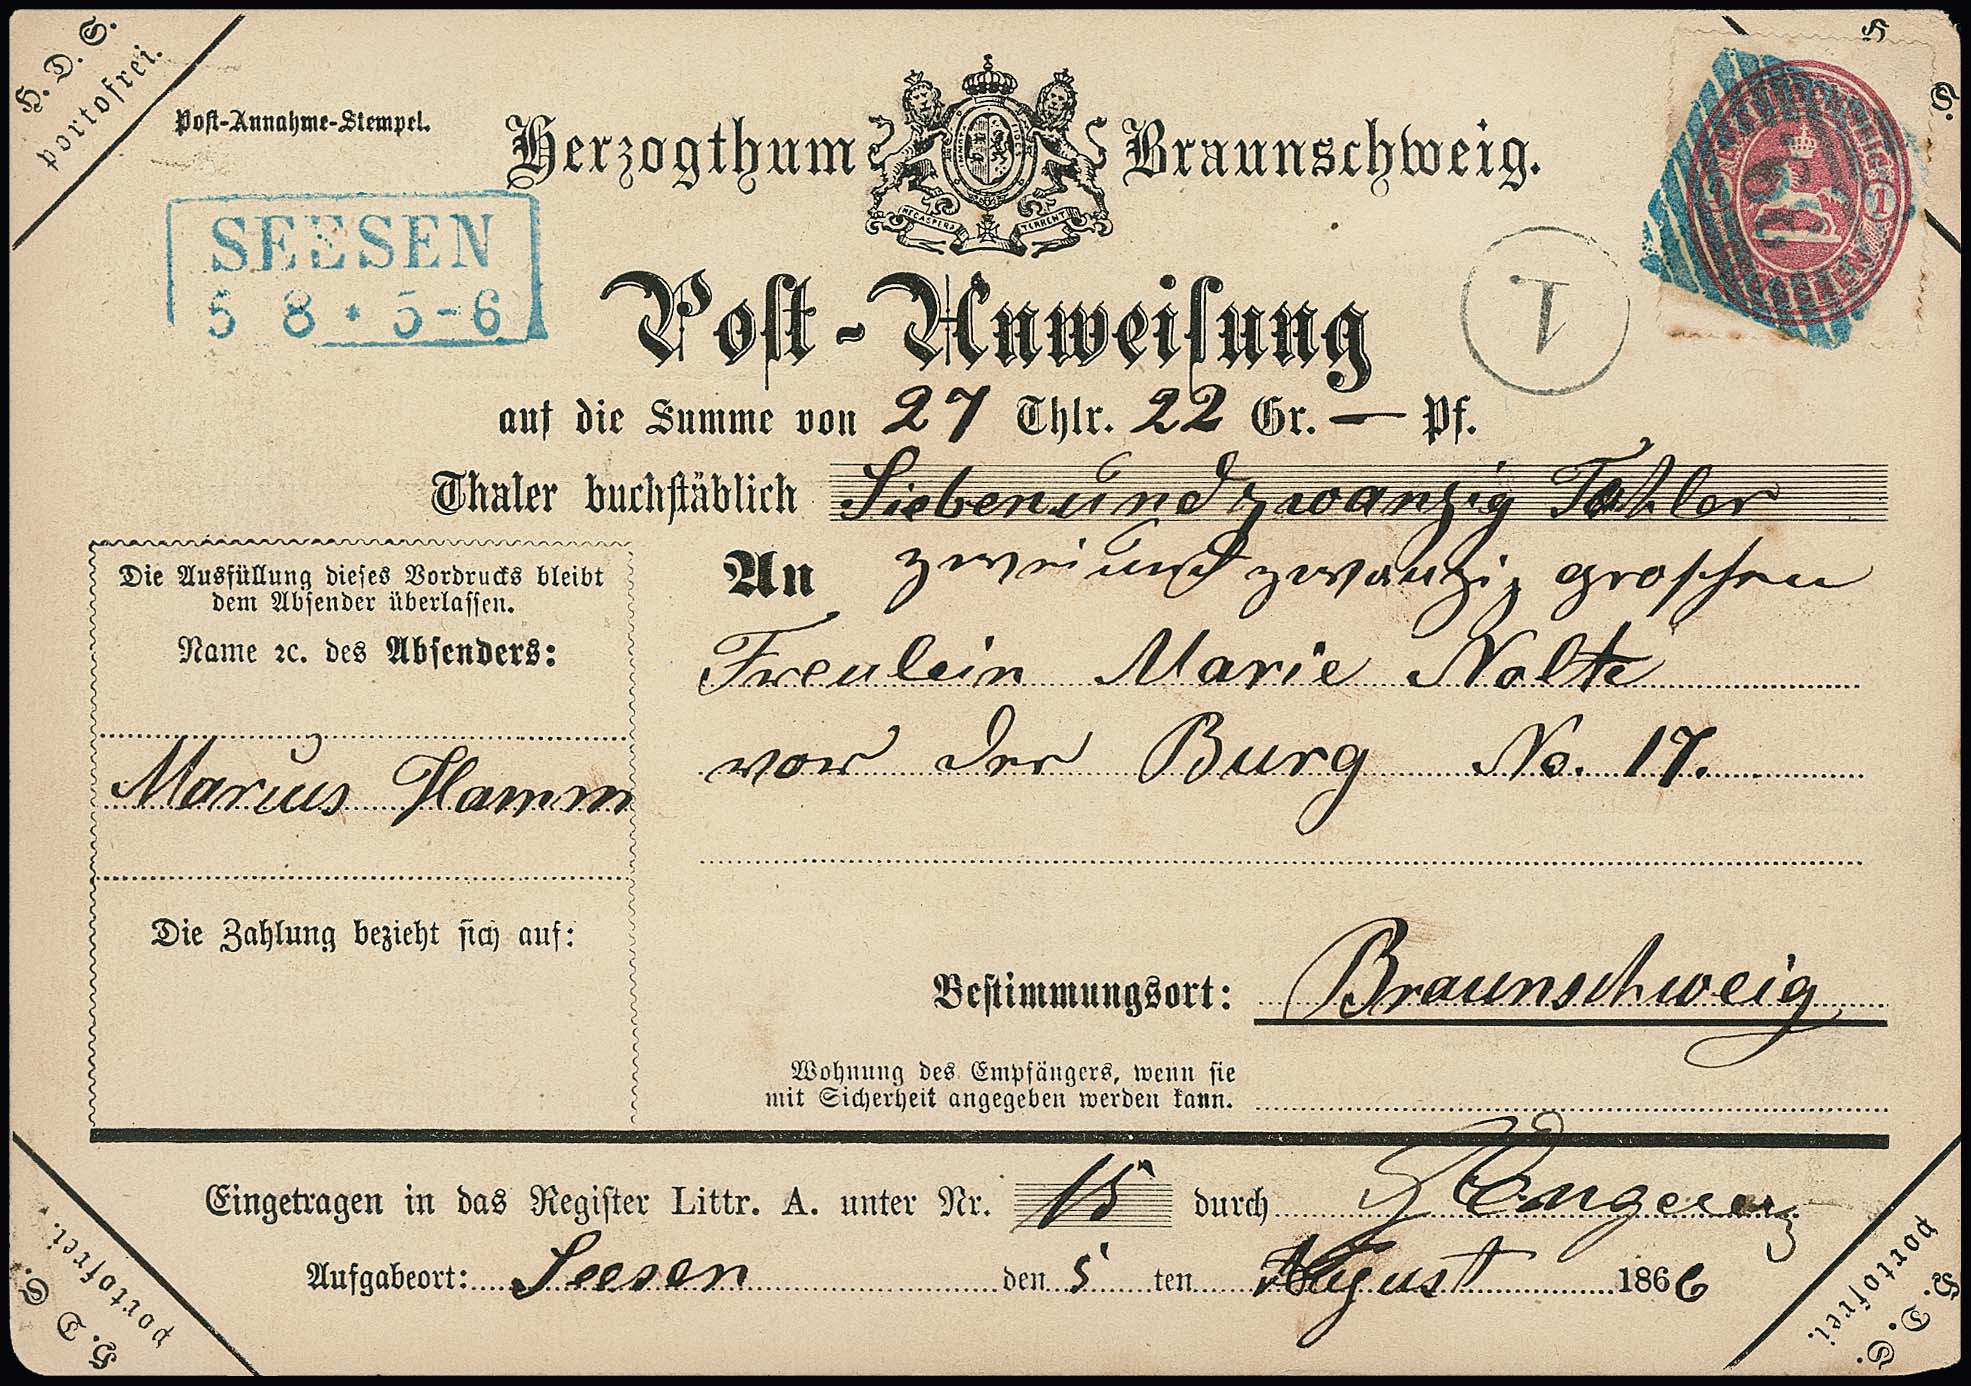 H. D. S.
portofrei.
Post-Annahme-Stempel.
Herzogthum Braunschweig.
NEC ASPERA TERRENT
SEESEN
5 8 * 5-6
1
Post-Anweisung
auf die Summe von 27 Thlr. 22 Gr. — Pf.
Thaler buchstäblich Siebenundzwanzig Tahler
zweiundzwanzig groschen
An
Freulein Marie Nolte
vor der Burg No. 17.
Die Ausfüllung dieses Vordrucks bleibt
dem Absender überlassen.
Name ꝛc. des Absenders:
Marius Hamm
Die Zahlung bezieht sich auf:
Bestimmungsort: Braunschweig
Wohnung des Empfängers, wenn sie
mit Sicherheit angegeben werden kann.
Eingetragen in das Register Littr. A. unter Nr. 15 durch
Aufgabeort: Seesen den 5 ten August 1866
H. D. S.
portofrei.
H. D. S.
portofrei.